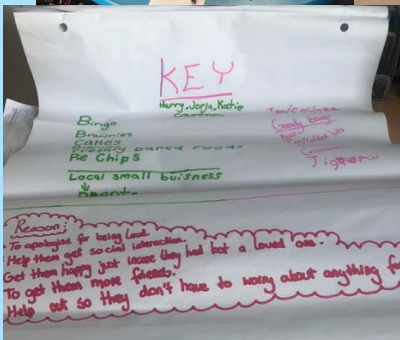 KEY
Harry, Jorja, Katie
Bingo
Brownies
Cakes
Freshly baked foods
Pie Chips
Local small buisness
Tea/Coffee
Goody bags
Jigsaw
Reason:
• To apologise for being loud.
• Help them get social interaction.
Get them happy just incase they had lost a loved one.
To get them more friends.
Help out so they don't have to worry about anything